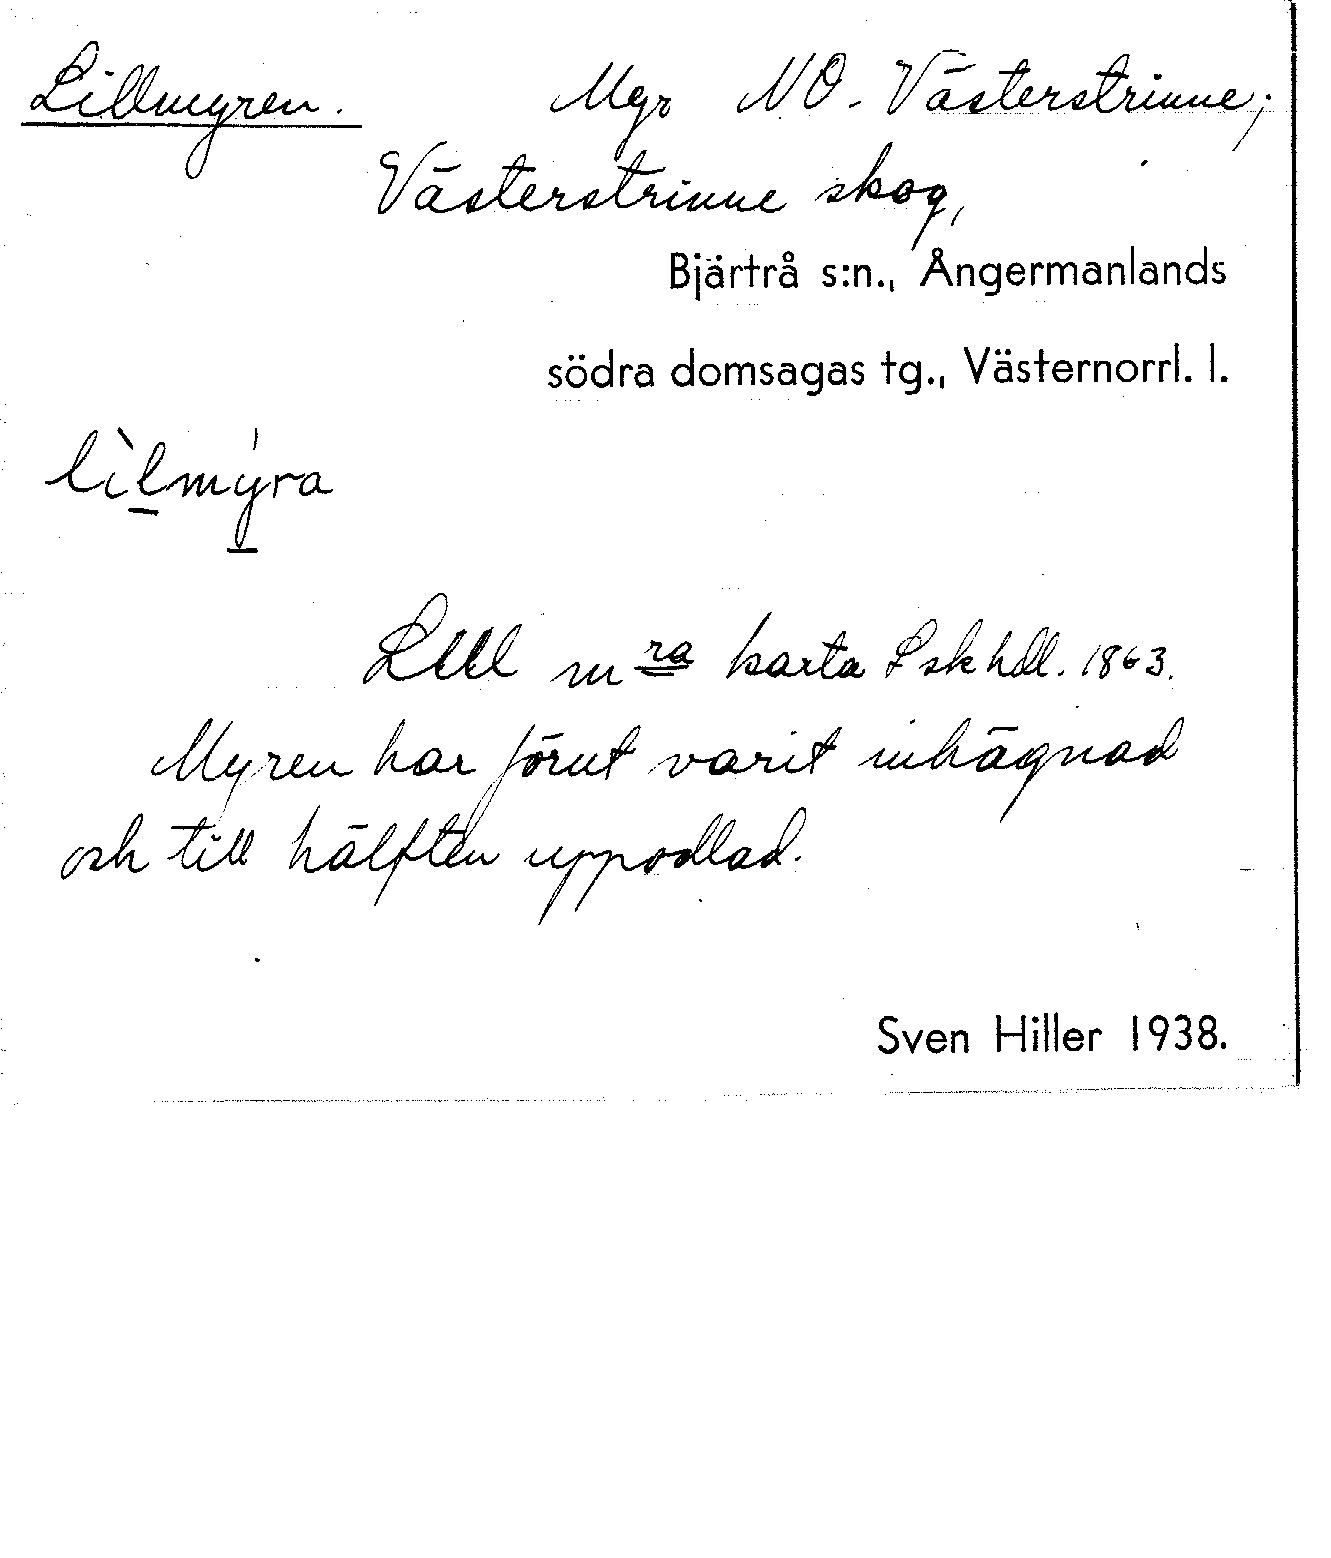 Lillmyren. Myr NO. Västerstrinne;
Västerstrinne skog,
Bjärtrå s:n., Ångermanlands
södra domsagas tg., Västernorrl. l.
lìlmýra
Lill m ra karta Lskhdl. 1863.
Myren har förut varit inhägnad
och till hälften uppodlad.
Sven Hiller 1938.